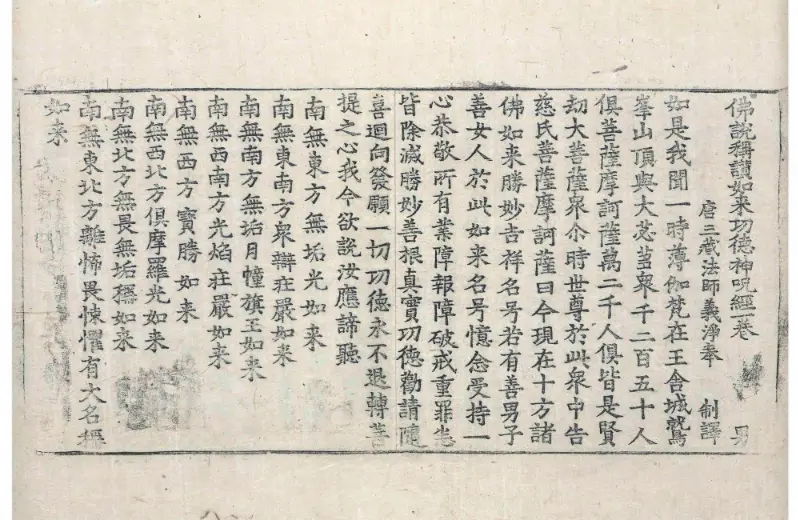 佛說稱讚如来功德神呪經一卷
唐三蔵法師義淨奉 制譯
如是我聞一時薄伽梵在王舍城鷲
峯山頂與大苾芻衆千二百五十人
俱菩薩摩訶薩萬二千人俱皆是賢
劫大菩薩衆尒時世尊於此衆中告
慈氏菩薩摩訶薩曰今現在十方諸
佛如来勝妙吉祥名号若有善男子
善女人於此如来名号憶念受持一
心恭敬所有業障報障破戒重罪悉
皆除滅勝妙善根真實功徳勸請隨
喜迴向發願一切功德永不退轉菩
提之心我今欲說汝應諦聽
南無東方無垢光如来
南無東南方衆辯莊嚴如来
南無南方無垢月幢旗王如来
南無西南方光焰莊嚴如来
南無西方寶勝如来
南無西北方俱摩羅光如来
南無北方無畏無垢穩如来
南無東北方離怖畏悚懼有大名稱
如来